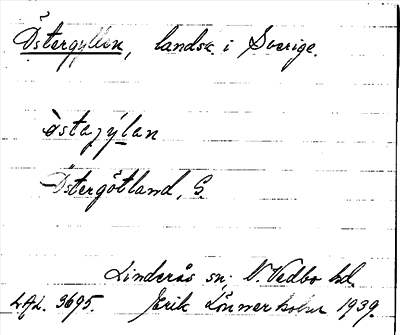 Östergyllen, landsk. i Sverige.
òstajýlan
Östergötland, S.
Linderås sn; N. Vedbo hd.
L.A.L. 3695. Erik Lönnerholm 1939.